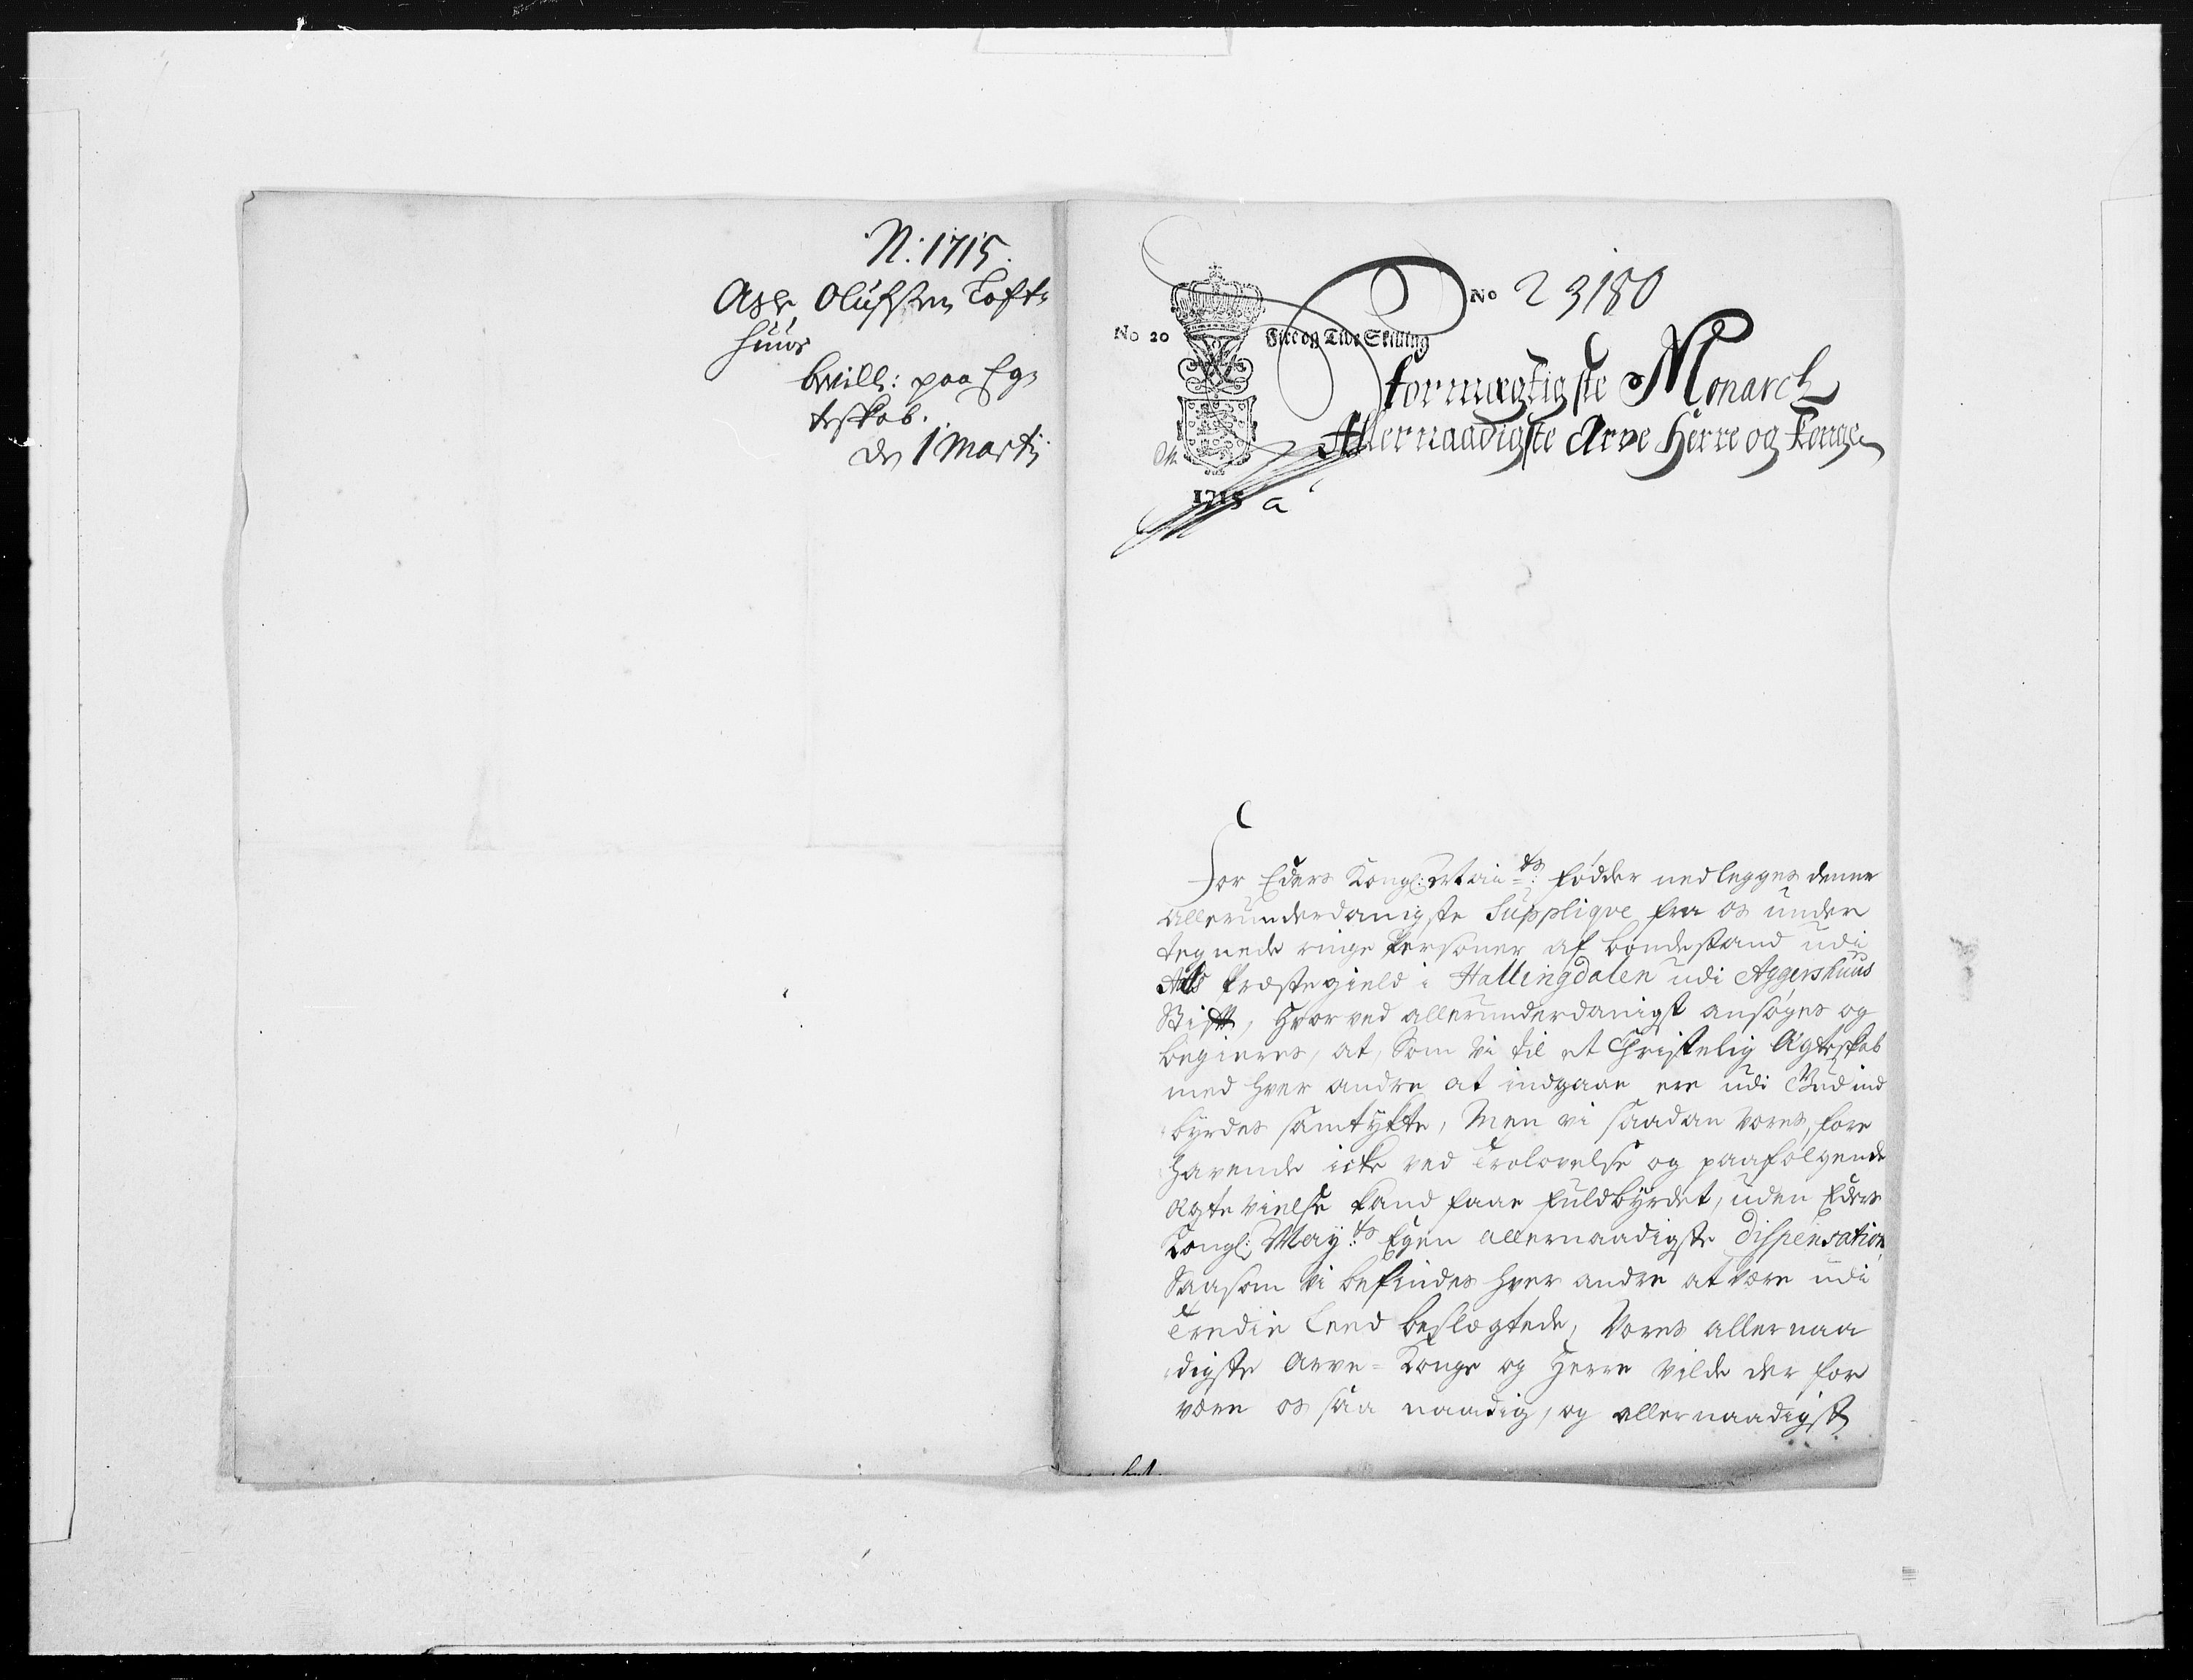 N: 1715.
Asle Olufssen Toft=
huus
bevill: paa Eg=
teskab.
d. 1 Martij
No 23180
No 20
Fire og Tive Skilling
Stormægtigste Monarch
Allernaadigste Arve Herre og Konge
1715 a
For Eders Kongl: Maits: fødder nedlegges denne
allerunderdanigste Supplique fra os under
tegnede ringe Personer af bondestand udi
Aals Præstegield i Hallingdalen udi Aggershuus
Stift, hvorved allerunderdanigst ansøges og
begieres, at, som vi til et Christelig Ægteskab
med hver andre at indgaae ere udi Gud ind
byrdes samtykte, Men vi saadan vores fore
havende icke ved Trolovelse og paafølgende
Ægte vielse kand faae fuldbyrdet, uden Eders
Kongl: May:ts Egen allernaadigste dispensation,
Saasom vi befindes hver andre at være udi
Tredie Leed beslægtede, Vores allernaa
digste Arve-Konge og Herre vilde der for
være os saa naadig, og allernaadigst